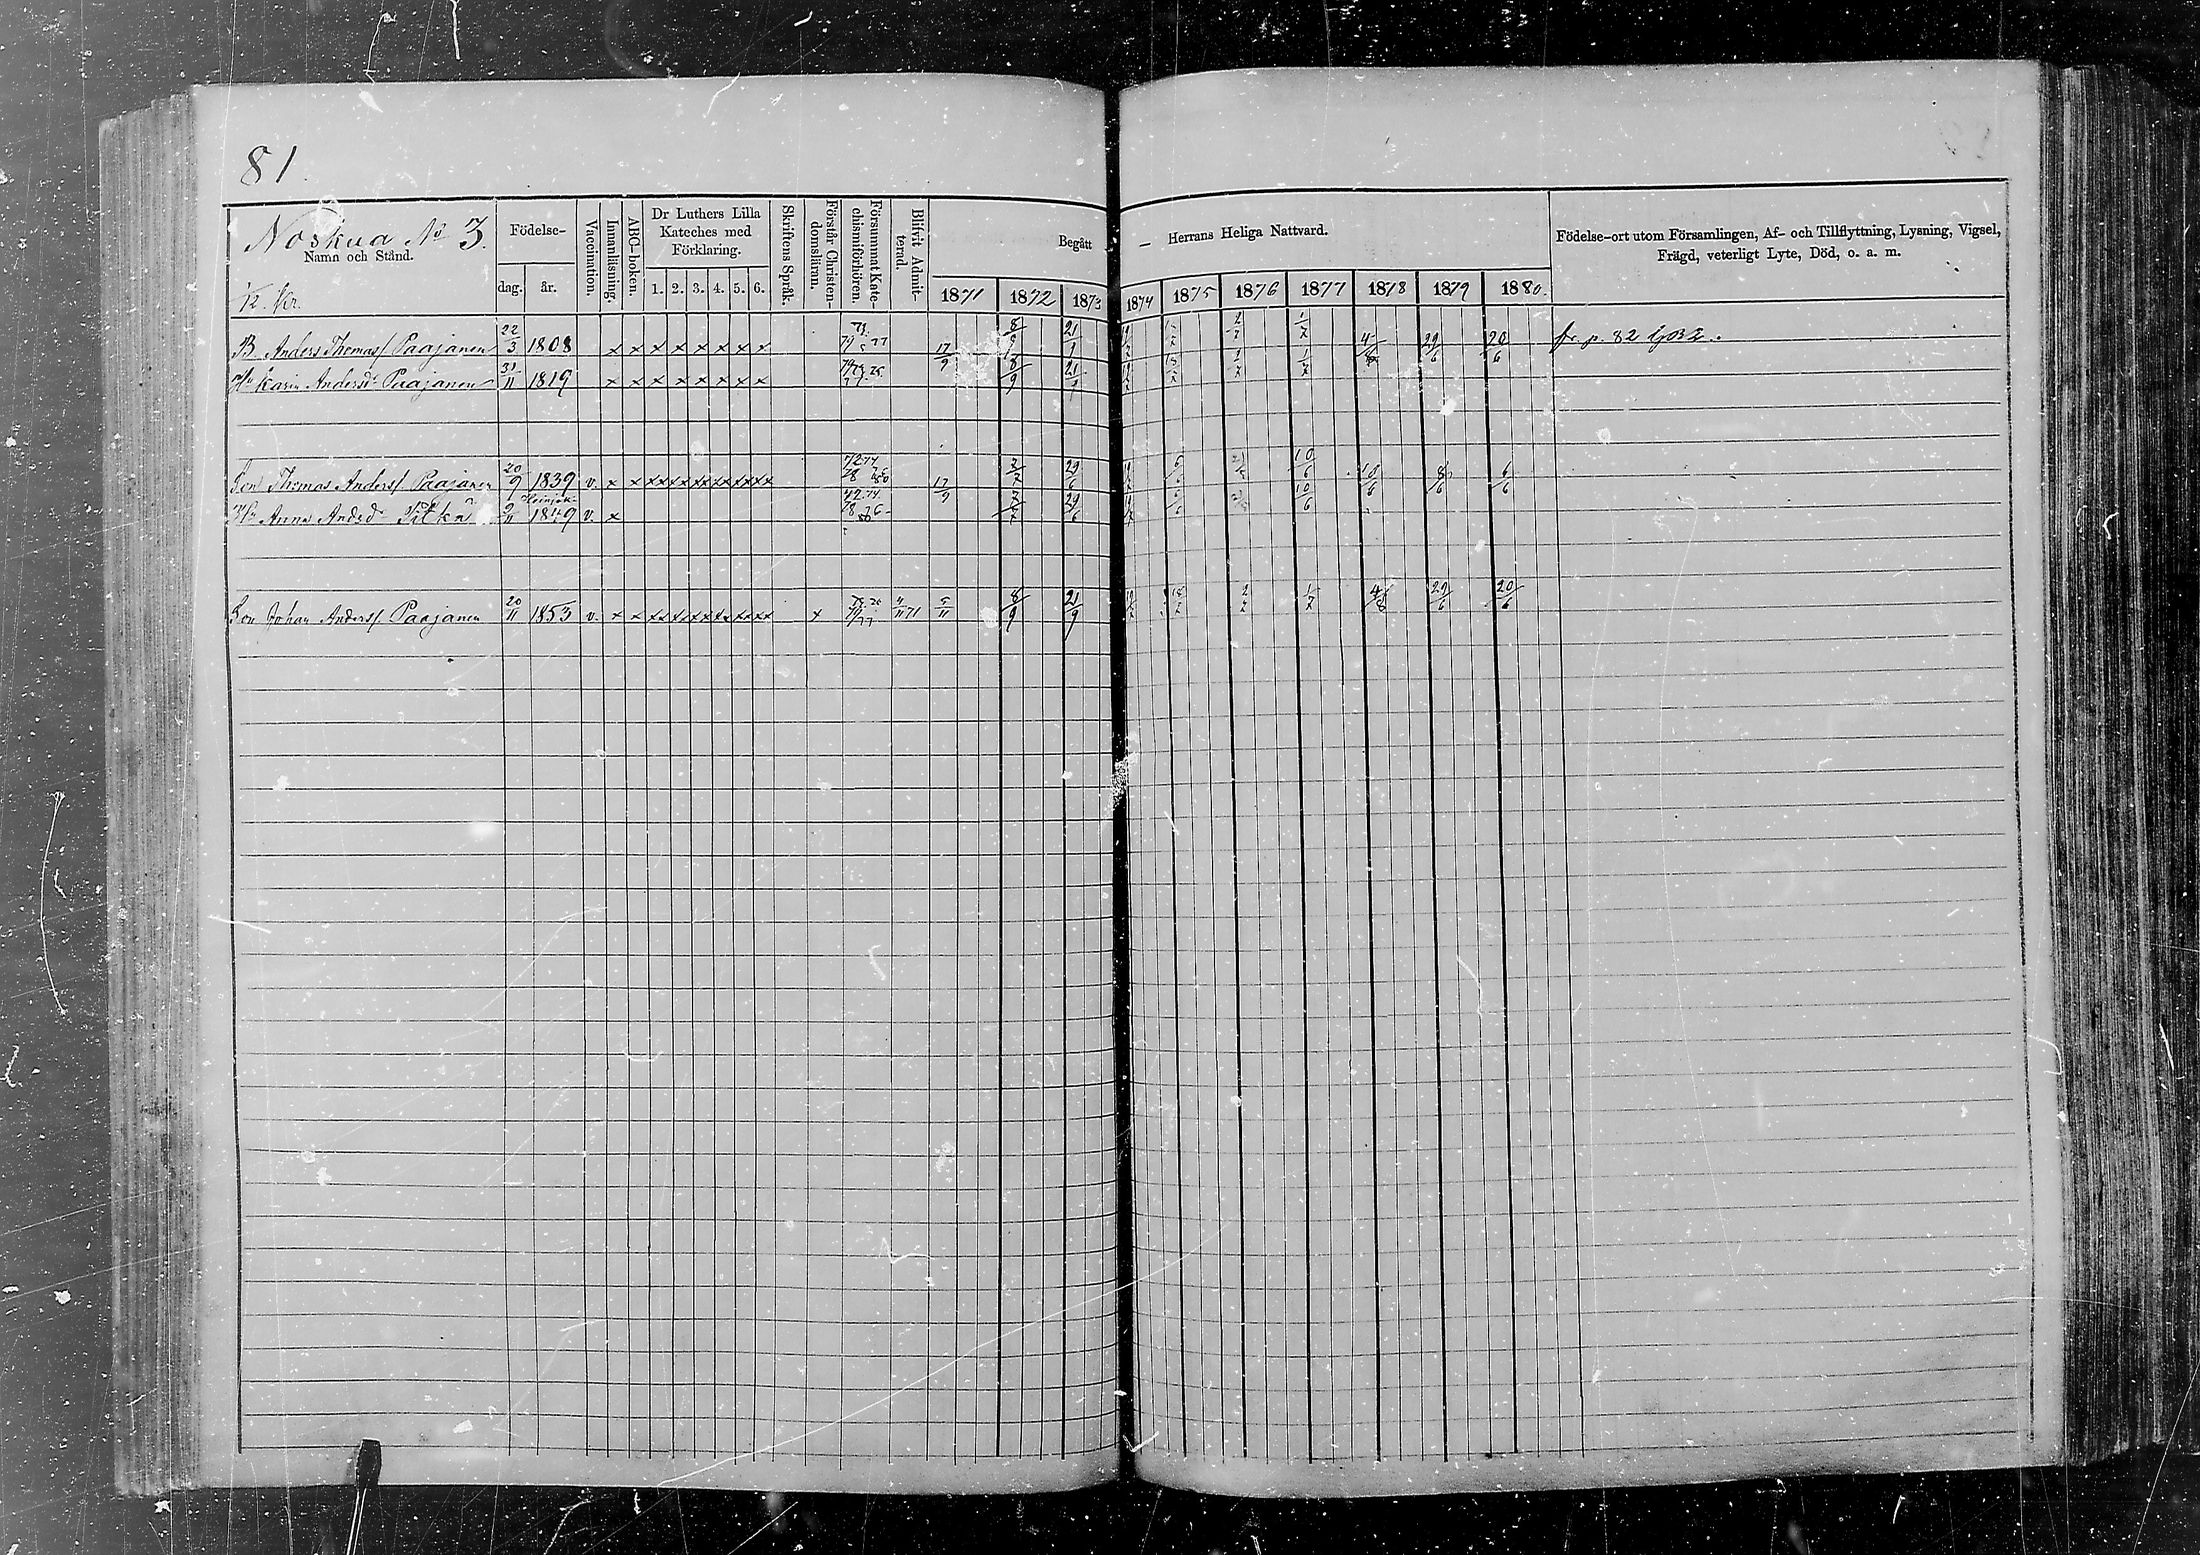 81
Noskua No 3.
Namn och Stånd.
K. Kr.
Födelse-
dag. år.
Vaccination.
Innanläsning.
ABC-boken.
Dr Luthers Lilla
Kateches med
Förklaring.
1. 2. 3. 4. 5. 6.
Skriftens Språk.
Förstår Christen-
domsläran.
Försummat Kate-
chismiförhören.
Blifvit Admit-
terad.
Begått
— Herrans Heliga Nattvard.
1871 1872 1873 1874 1875 1876 1877 1878 1879 1880.
Födelse-ort utom Församlingen, Af- och Tillflyttning, Lysning, Vigsel,
Frägd, veterligt Lyte, Död, o. a. m.
B. Anders Thomass. Paajanen 22/3 1808 x x x x x x x x 17/9 8/9 21/9 1/7 4/8 29/6 20/6 fr. p. 82
Karin Andersd. Paajanen 31/11 1819 x x x x x x x x 8/9 21/9 1/7
Son Thomas Anderss. Paajanen 20/9 1839 v. x x x x x x x x 17/9 7/7 29/6 6/6 10/6 10/6 8/6 6/6
Anna Andsd. Pitkä 2/11 1849 v. x 7/7 29/6 6/6 10/6
Son Johan Anderss. Paajanen 20/11 1853 v. x x x x x x x x x 4/11 71 5/11 8/9 21/9 18/7 2/7 1/7 4/8 29/6 20/6